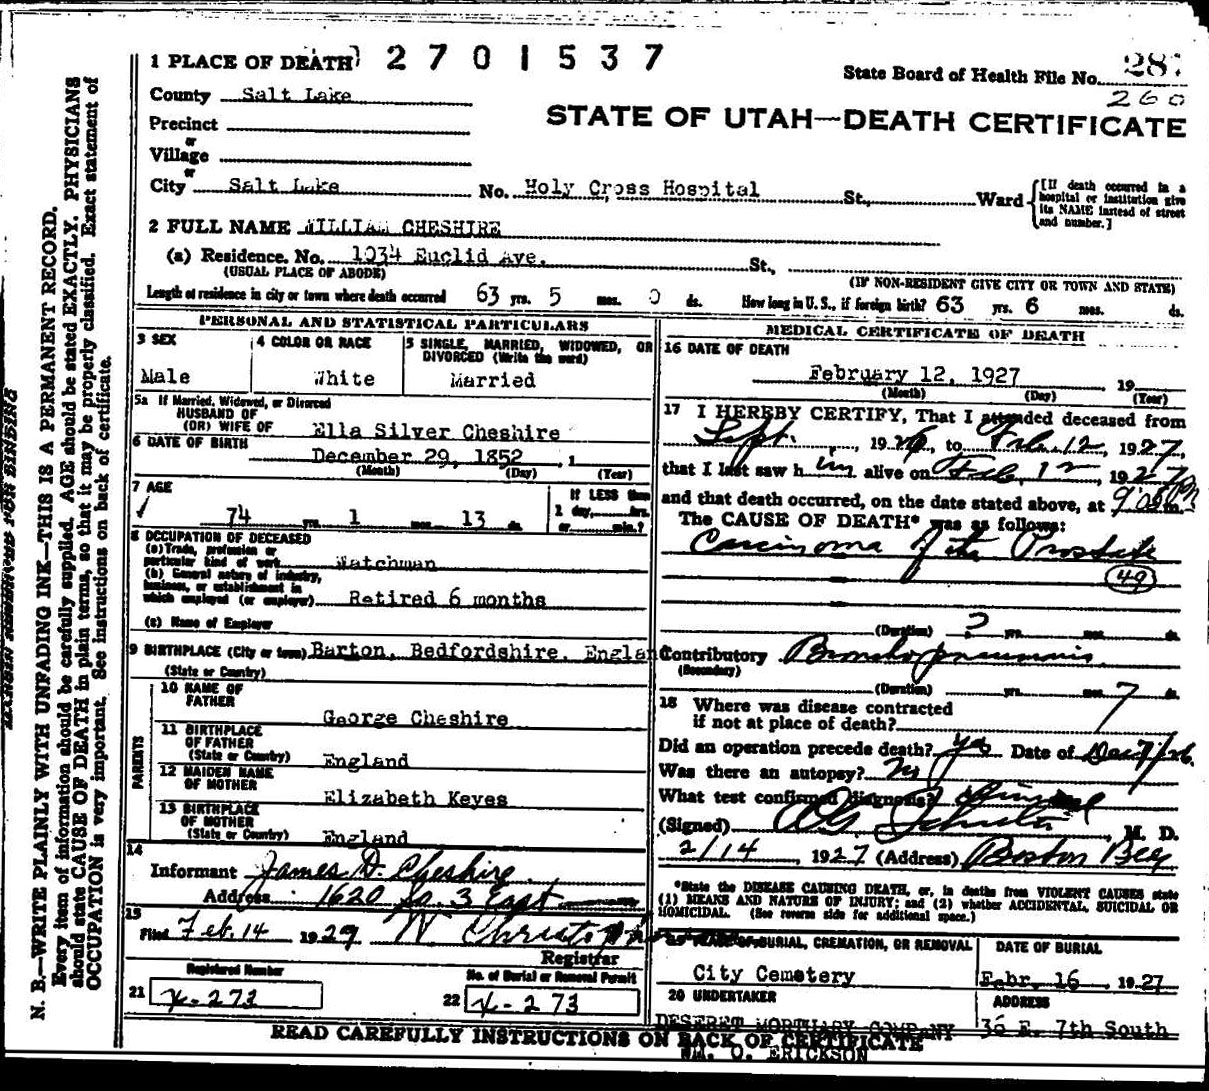 1 PLACE OF DEATH 2701537
State Board of Health File No. 28
260
County Salt Lake
STATE OF UTAH—DEATH CERTIFICATE
Precinct
or
Village
or
City Salt Lake No. Holy Cross Hospital St., Ward
[If death occurred in a hospital or institution give its NAME instead of street and number.]
2 FULL NAME WILLIAM CHESHIRE
(a) Residence. No. 1034 Euclid Ave. St.,
(USUAL PLACE OF ABODE) (IF NON-RESIDENT GIVE CITY OR TOWN AND STATE)
Length of residence in city or town where death occurred 63 yrs. 5 mos. 0 ds. How long in U. S., if foreign birth? 63 yrs. 6 mos. ds.
PERSONAL AND STATISTICAL PARTICULARS
3 SEX
Male
4 COLOR OR RACE
White
5 SINGLE, MARRIED, WIDOWED, OR DIVORCED (Write the word)
Married
5a If Married, Widowed, or Divorced
HUSBAND OF
(OR) WIFE OF Ella Silver Cheshire
6 DATE OF BIRTH
December 29, 1852, 1
(Month) (Day) (Year)
7 AGE
74 yrs. 1 mos. 13 ds.
If LESS than
1 day, hrs.
or min.?
8 OCCUPATION OF DECEASED
(a) Trade, profession or
particular kind of work Watchman
(b) General nature of industry,
business, or establishment in
which employed (or employer) Retired 6 months
(c) Name of Employer
9 BIRTHPLACE (City or town) Barton, Bedfordshire, England
(State or Country)
PARENTS
10 NAME OF
FATHER
George Cheshire
11 BIRTHPLACE
OF FATHER
(State or Country) England
12 MAIDEN NAME
OF MOTHER
Elizabeth Keyes
13 BIRTHPLACE
OF MOTHER
(State or Country) England
14
Informant James D. Cheshire
Address 1620 So. 3 East
15
Filed Feb. 14 1929 W Christopherson
Registrar
Registered Number
21 X-273
No. of Burial or Removal Permit
22 X-273
MEDICAL CERTIFICATE OF DEATH
16 DATE OF DEATH
February 12, 1927 19
(Month) (Day) (Year)
17 I HEREBY CERTIFY, That I attended deceased from
Sept. , 1926, to Feb. 12, 1927,
that I last saw him alive on Feb, 12, 1927
and that death occurred, on the date stated above, at m.
The CAUSE OF DEATH* was as follows:
Carcinoma of the Prostate
49
(Duration) ? yrs. mos. ds.
Contributory Bronchopneumonia
(Secondary)
(Duration) yrs. mos. 7 ds.
18 Where was disease contracted
if not at place of death?
Did an operation precede death? yes Date of Dec 7/26.
Was there an autopsy? No
What test confirmed diagnosis?
(Signed) , M. D.
2/14, 1927 (Address) Boston Bldg
*State the DISEASE CAUSING DEATH, or, in deaths from VIOLENT CAUSES state
(1) MEANS AND NATURE OF INJURY; and (2) whether ACCIDENTAL, SUICIDAL OR
HOMICIDAL. (See reverse side for additional space.)
PLACE OF BURIAL, CREMATION, OR REMOVAL
City Cemetery
DATE OF BURIAL
Febr. 16, 1927
20 UNDERTAKER
DESERET MORTUARY COMPANY
WM. O. ERICKSON
ADDRESS
36 E. 7th South
READ CAREFULLY INSTRUCTIONS ON BACK OF CERTIFICATE
MARGIN RESERVED FOR BINDING
N. B.—WRITE PLAINLY WITH UNFADING INK—THIS IS A PERMANENT RECORD.
Every item of information should be carefully supplied. AGE should be stated EXACTLY. PHYSICIANS
should state CAUSE OF DEATH in plain terms, so that it may be properly classified. Exact statement of
OCCUPATION is very important. See instructions on back of certificate.